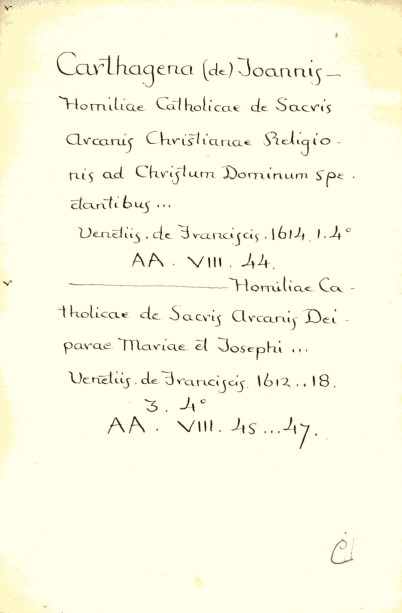 Carthagena (de) Joannis —
Homiliae Catholicae de Sacris
Arcanis Christianae Religio-
nis ad Christum Dominum spe-
ctantibus ...
Venetiis. de Franciscis. 1614. 1. 4°
AA. VIII. 44.
———— Homiliae Ca-
tholicae de Sacris Arcanis Dei-
parae Mariae et Josephi ...
Venetiis. de Franciscis. 1612..18.
3. 4°
AA. VIII. 45...47.